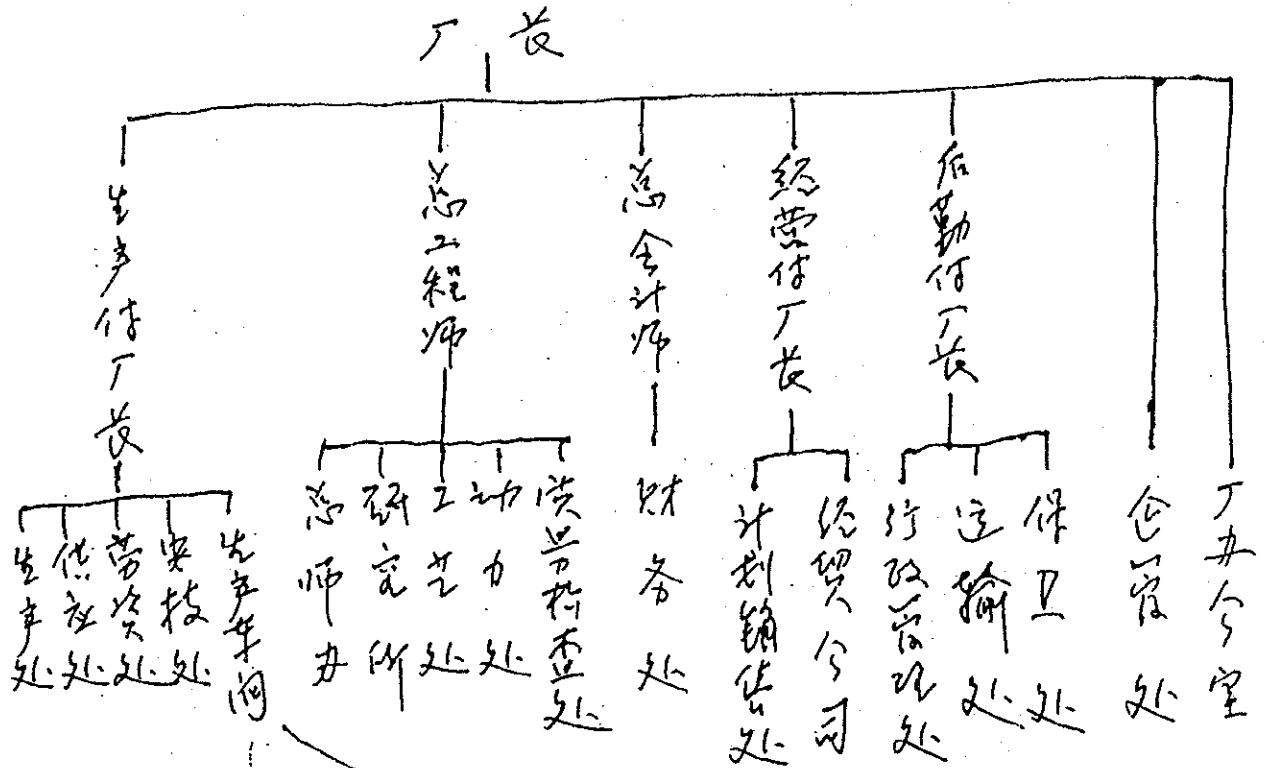 厂长
生产付厂长
总工程师
总会计师
经营付厂长
后勤付厂长
生产处
供应处
劳资处
安技处
生产车间
总师办
研究所
工艺处
动力处
质量检查处
财务处
计划销售处
经贸公司
行政管理处
运输处
保卫处
企管处
厂办公室